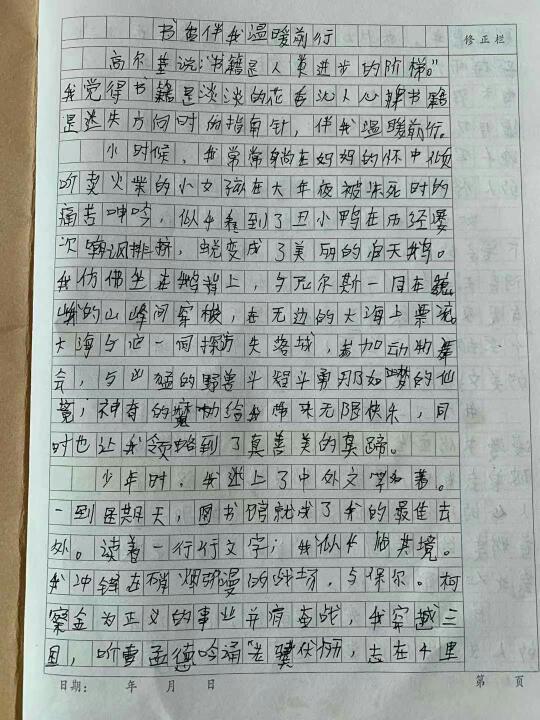 书香伴我温暖前行
修正栏
高尔基说:"书籍是人类进步的阶梯。"
我觉得书籍是淡淡的花香沁人心脾书籍
是迷失方向时的指南针,伴我温暖前行。
小时候,我常常躺在妈妈的怀中倾
听卖火柴的小女孩在大年夜被冻死时的
痛苦呻吟,似乎看到了丑小鸭在历经屡
次嘲讽排挤,蜕变成了美丽的白天鹅。
我仿佛坐在鹅背上,与尼尔斯一同在巍
峨的山峰间穿梭,在无边的大海上票流。
大海与它一同探访失落城,参加动物聚
会,与凶猛的野兽斗智斗勇那如梦的仙
境;神奇的魔力给我带来无限快乐,同
时也让我领略到了真善美的真蹄。
少年时,我迷上了中外文学名著。
一到星期天,图书馆就成了我的最佳去
处。读着一行行文字;我似乎临其境。
我冲锋在硝烟弥漫的战场,与保尔。柯
察金为正义的事业并肩奋战,我穿越三
国,听曹孟德吟诵"老骥伏枥,志在千里
日期: 年 月 日
第 页